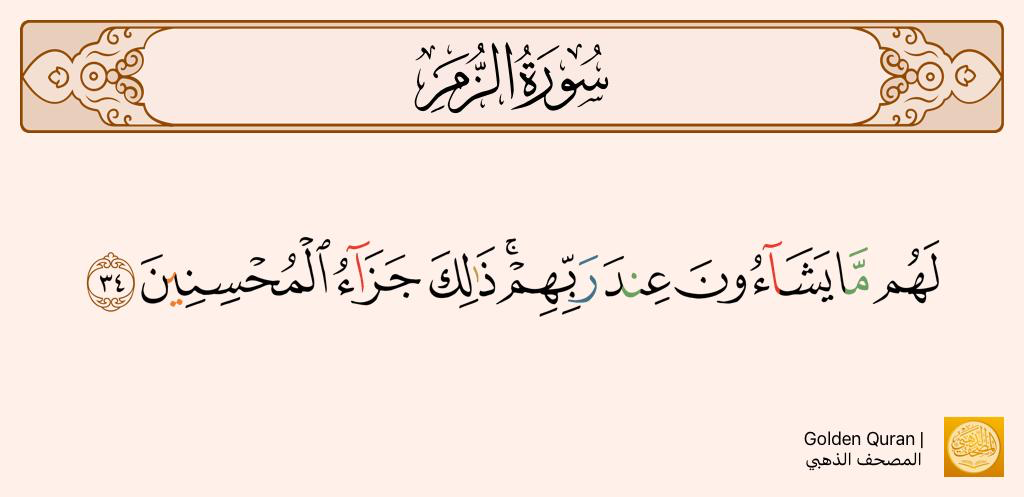 سُورَةُ الزُّمَرِ
لَهُم مَّا يَشَآءُونَ عِندَ رَبِّهِمْۚ ذَٰلِكَ جَزَآءُ ٱلْمُحْسِنِينَ ٣٤
Golden Quran |
المصحف الذهبي